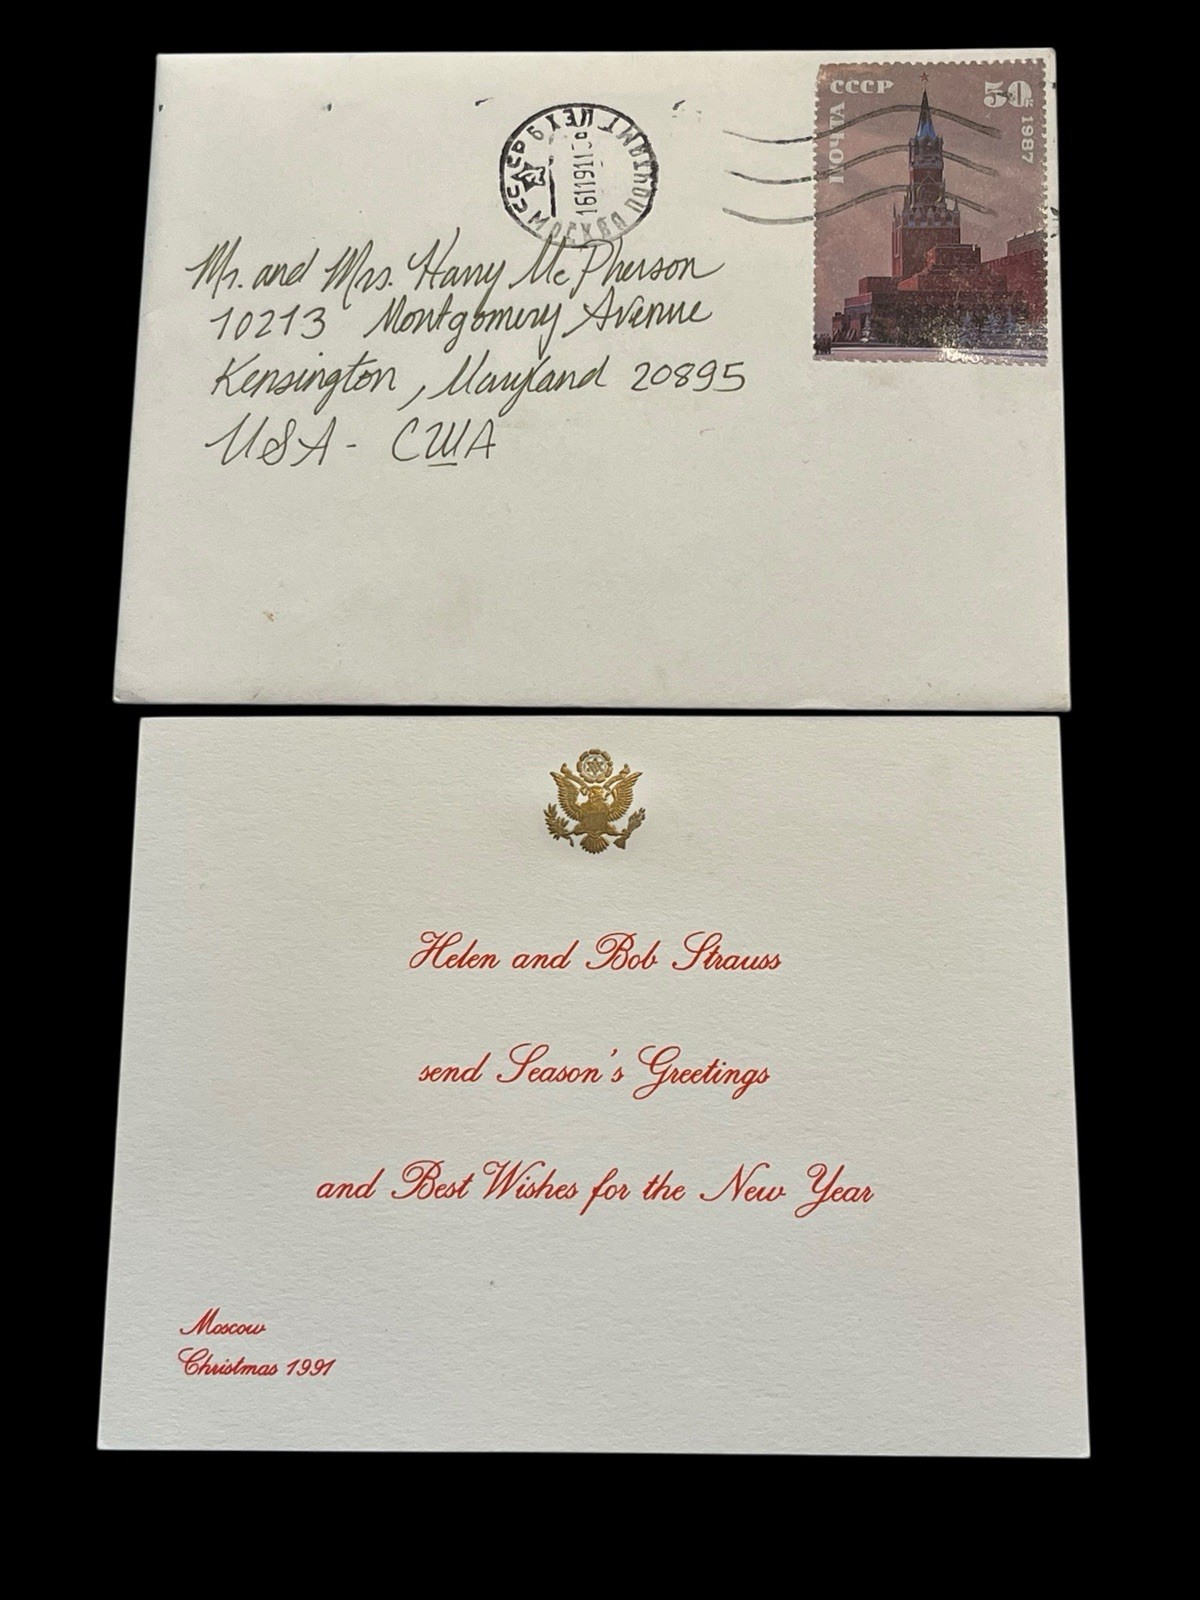 СССР
ПОЧТА
50к
1987
СССР
МОСКВА ПОЧТАМТ
Mr. and Mrs. Harry McPherson
10213 Montgomery Avenue
Kensington, Maryland 20895
USA - США
Helen and Bob Strauss
send Season's Greetings
and Best Wishes for the New Year
Moscow
Christmas 1991